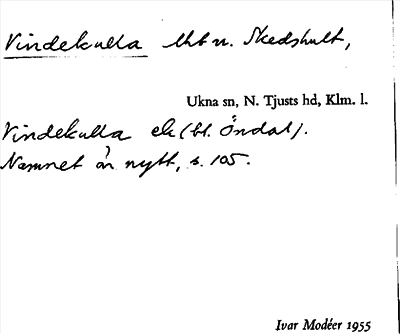 Vindekulla lht u. Skedshult,
Ukna sn, N. Tjusts hd, Klm. l.
Vindekulla ek (bl. Öndal).
Namnet är nytt, s. 105.
Ivar Modéer 1955